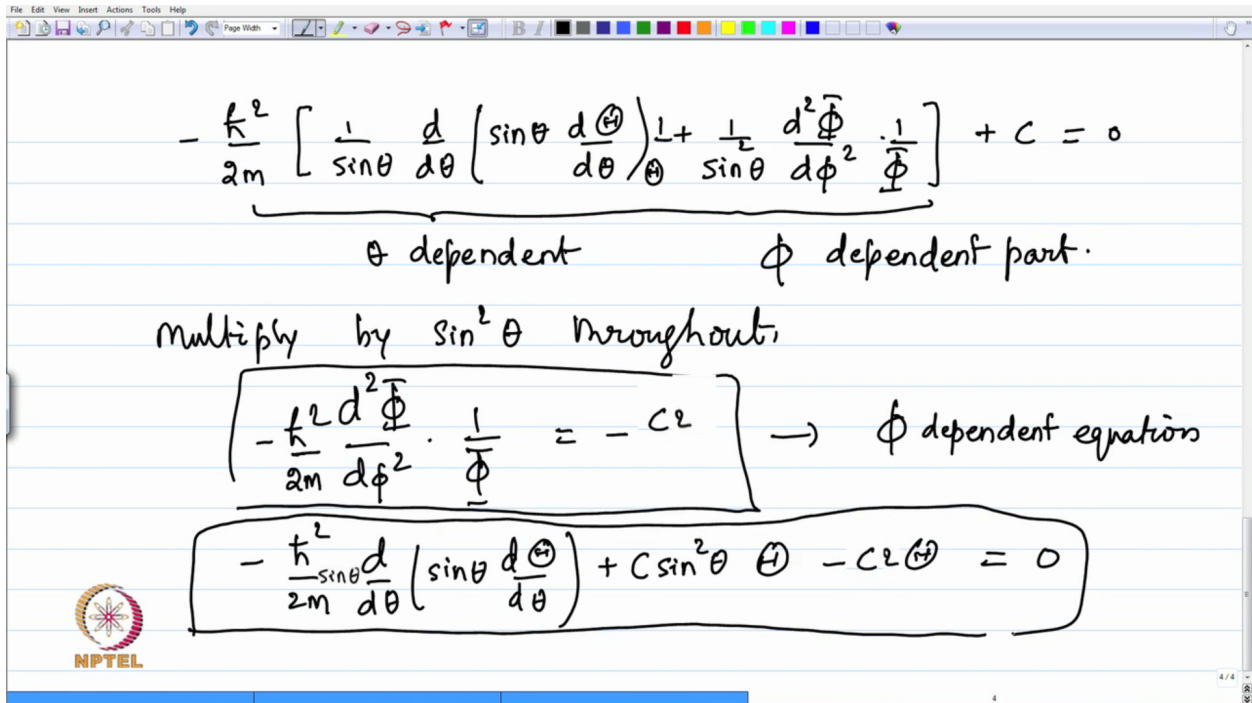 File Edit View Insert Actions Tools Help
Page Width B I
- ℏ²/2m [ 1/sinθ d/dθ ( sinθ dΘ/dθ ) 1/Θ + 1/sin²θ d²Φ/dϕ² · 1/Φ ] + C = 0
θ dependent ϕ dependent part.
Multiply by sin²θ throughout,
- ℏ²/2m d²Φ/dϕ² · 1/Φ = - C2 → ϕ dependent equation
- ℏ²/2m sinθ d/dθ ( sinθ dΘ/dθ ) + C sin²θ Θ - C2 Θ = 0
NPTEL
4/4
4